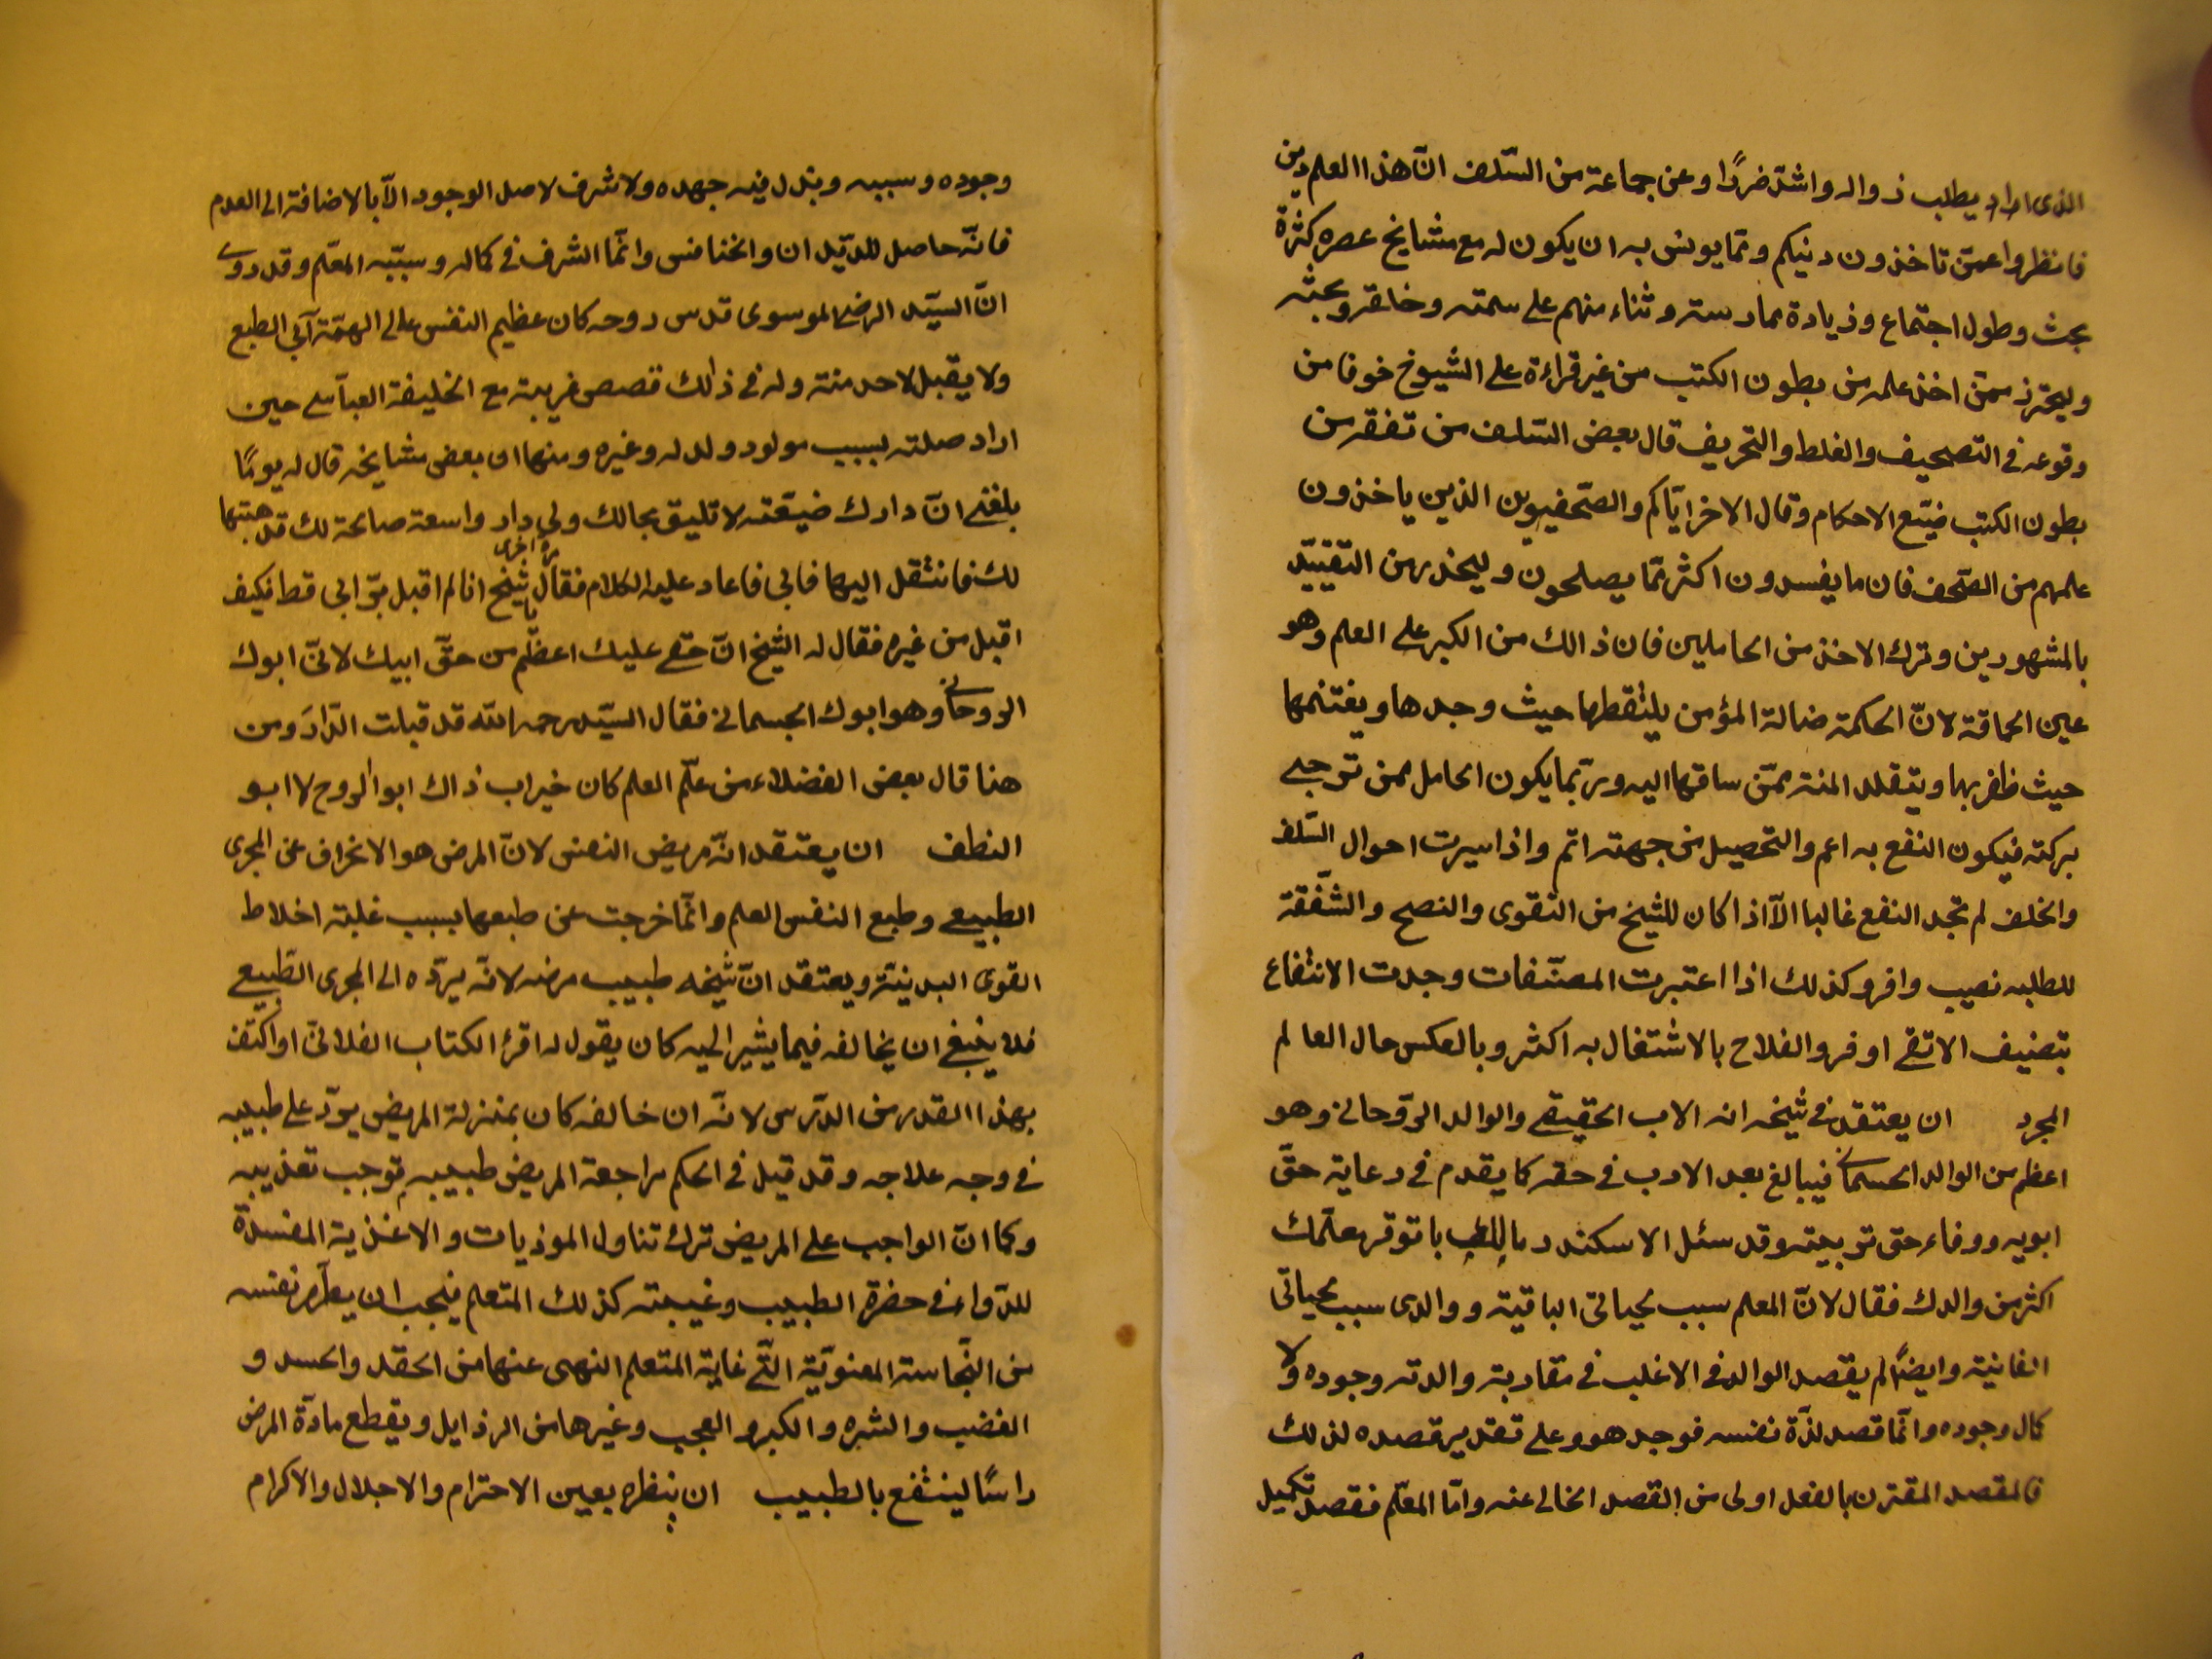 الذى اراد يطلب زواله واشدّ ضررًا وعن جماعة من السّلف انّ هذا العلم دين
فانظروا عمّن تاخذون دينكم وممّا يونس به ان يكون له مع مشايخ عصره كثرة
بحث وطول اجتماع وزيادة ممارسته وثناء منهم على سمته وخلقه وبحثه
وليحترز ممّن اخذ علمه من بطون الكتب من غير قراءة على الشيوخ خوفا من
وقوعه في التصحيف والغلط والتحريف قال بعض السّلف من تفقه من
بطون الكتب ضيّع الاحكام وقال الاخر ايّاكم والصّحفيون الذين ياخذون
علمهم من الصّحف فان ما يفسدون اكثر ممّا يصلحون وليحذر من التقييّد
بالمشهورين وترك الاخذ من الخاملين فان ذالك من الكبر على العلم وهو
عين الحماقة لانّ الحكمة ضالة المؤمن يلتقطها حيث وجدها ويغتنمها
حيث ظفر بها ويتقلد المنة ممّن ساقها اليه وربّما يكون الخامل ممن ترجى
بركته فيكون النفع به اعم والتحصيل من جهته اتم واذا سبرت احوال السّلف
والخلف لم تجد النفع غالبا الاّ اذا كان للشيخ من التقوى والنصح والشّفقة
للطلبه نصيب وافر وكذلك اذا اعتبرت المصنّفات وجدت الانتفاع
بتصنيف الاتقى اوفر والفلاح بالاشتغال به اكثر وبالعكس حال العالم
المجرد ان يعتقد في شيخه انه الاب الحقيقي والوالد الرّوحاني وهو
اعظم من الوالد الجسماني فيبالغ بعد الادب في حقه كما يقدم في رعاية حقّ
ابويه ووفاء حق تربيته وقد سئل الاسكندر ما بالك توقر معلّمك
اكثر من والدك فقال لانّ المعلم سبب لحياتى الباقية ووالدى سبب لحياتى
الفانية وايضًا لم يقصد الوالد في الاغلب في مقاربة والدته وجوده ولا
كمال وجوده وانّما قصد لذّة نفسه فوجد هو وعلى تقدير قصده لذلك
فالمقصد المقترن بالفعل اولى من القصد الخالى عنه وامّا المعلّم فقصد تكميل
وجوده وسببه وبذل فيه جهده ولا شرف لاصل الوجود الاّ بالاضافة الى العدم
فانّه حاصل للدّيدان والخنافس وانّما الشرف في كماله وسببه المعلّم وقد روى
انّ السيّد الرضى الموسوى قدس روحه كان عظيم النفس عالى الهمّة آبي الطبع
ولا يقبل لاحد منته وله في ذالك قصص غريبة مع الخليفة العباّسى حين
اراد صلته بسبب مولود ولد له وغيره ومنها ان بعض مشايخه قال له يومًا
بلغنى انّ دارك ضيّقته لا تليق بحالك ولى دار واسعة صالحة لك قد وهبتها
لك فانتقل اليها فابي فاعاد عليه الكلام مرة اخرى فقال يا شيخ انا لم اقبل برّ ابى قط فكيف
اقبل من غيره فقال له الشيخ انّ حقى عليك اعظم من حقّ ابيك لانّى ابوك
الروحانى وهو ابوك الجسمانى فقال السيّد رحمه اللّه قد قبلت الدّارَ ومن
هنا قال بعض الفضلاء من علّم العلم كان خير اب ذاك ابو الروح لا ابو
النطف ان يعتقد انّه مريض النفس لانّ المرض هو الانحراف عن المجرى
الطبيعى وطبع النفس العلم وانّما خرجت عن طبعها بسبب غلبة اخلاط
القوى البدنيّة ويعتقد انّ شيخه طبيب مرضه لانّه يردّه الى المجرى الطّبيعى
فلا ينبغى ان يخالفه فيما يشير اليه كان يقول له اقرء الكتاب الفلانىّ او اكتف
بهذا القدر من الدّرس لانّه ان خالفه كان بمنزلة المريض يردّ على طبيبه
في وجه علاجه وقد قيل في الحكم مراجعة المريض طبيبه توجب تعذيبه
وكما انّ الواجب على المريض ترك تناول الموذيات والاغذية المفسدة
للدّواء في حضرة الطبيب وغيبته كذلك المتعلم فيجب ان يطّهر نفسه
من النّجاسة المعنويّة التّى غاية المتعلم النهى عنها من الحقد والحسد و
الغضب والشره والكبر والعجب وغيرها من الرذايل ويقطع مادّة المرض
راسًا لينتفع بالطبيب ان ينظره بعين الاحترام والاجلال والاكرام